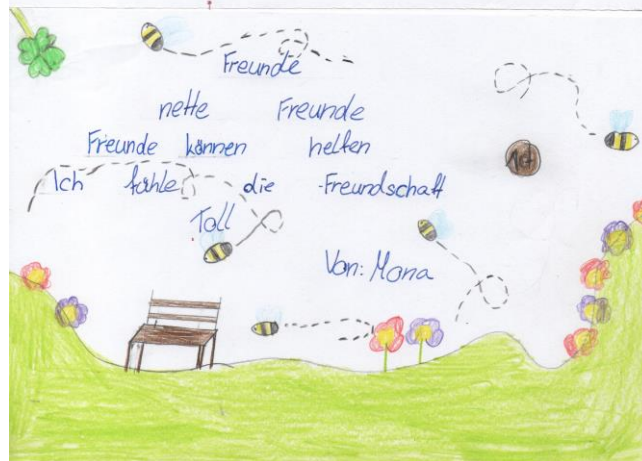 Freunde
nette Freunde
Freunde können helfen
Ich fühle die Freundschaft
Toll
Von: Mona